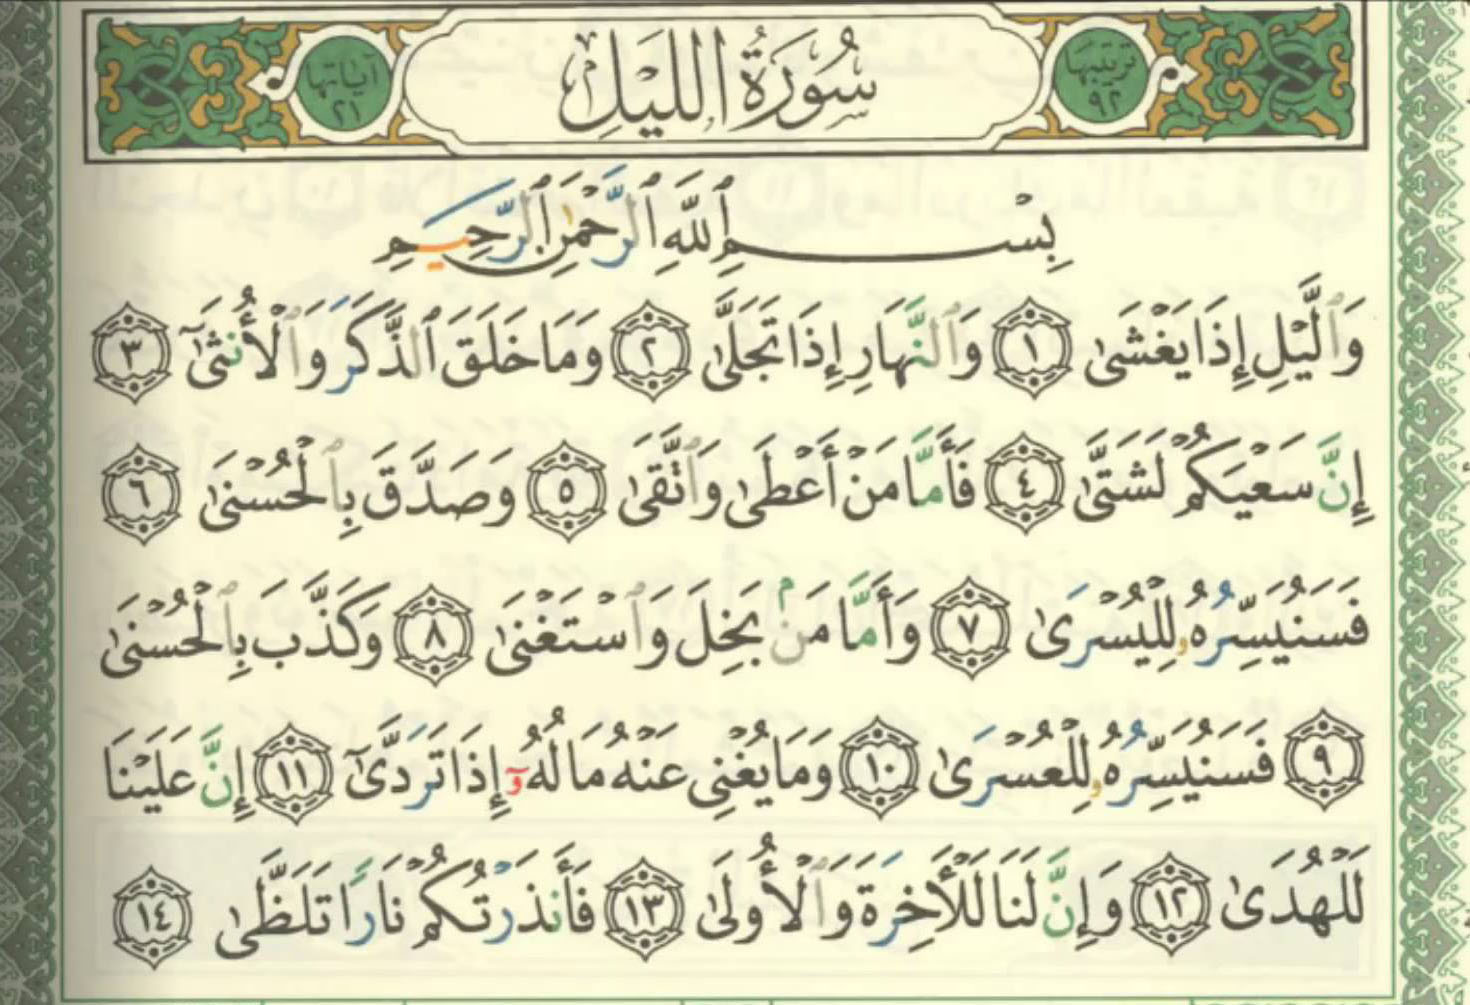 ترتيبها ٩٢ سُورَةُ اللَّيۡلِ آياتها ٢١
بِسۡمِ ٱللَّهِ ٱلرَّحۡمَٰنِ ٱلرَّحِيمِ
وَٱلَّيۡلِ إِذَا يَغۡشَىٰ ١ وَٱلنَّهَارِ إِذَا تَجَلَّىٰ ٢ وَمَا خَلَقَ ٱلذَّكَرَ وَٱلۡأُنثَىٰٓ ٣
إِنَّ سَعۡيَكُمۡ لَشَتَّىٰ ٤ فَأَمَّا مَنۡ أَعۡطَىٰ وَٱتَّقَىٰ ٥ وَصَدَّقَ بِٱلۡحُسۡنَىٰ ٦
فَسَنُيَسِّرُهُۥ لِلۡيُسۡرَىٰ ٧ وَأَمَّا مَنۢ بَخِلَ وَٱسۡتَغۡنَىٰ ٨ وَكَذَّبَ بِٱلۡحُسۡنَىٰ
٩ فَسَنُيَسِّرُهُۥ لِلۡعُسۡرَىٰ ١٠ وَمَا يُغۡنِي عَنۡهُ مَالُهُۥٓ إِذَا تَرَدَّىٰٓ ١١ إِنَّ عَلَيۡنَا
لَلۡهُدَىٰ ١٢ وَإِنَّ لَنَا لَلۡأٓخِرَةَ وَٱلۡأُولَىٰ ١٣ فَأَنذَرۡتُكُمۡ نَارٗا تَلَظَّىٰ ١٤